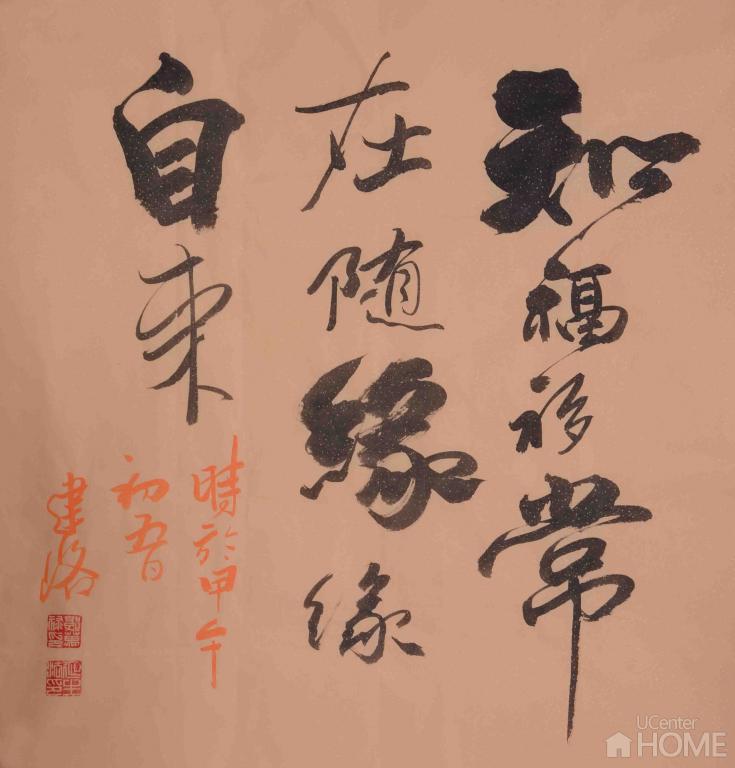 知福福常
在随緣緣
自来
時於甲午
初五日
建洛
UCenter
HOME